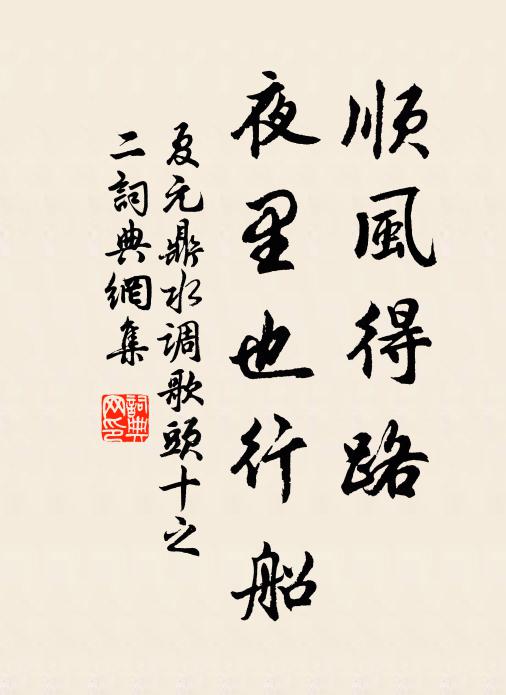 順風得路
夜里也行船
夏元鼎水调歌頭十之
二詞典網集
詞典
网印